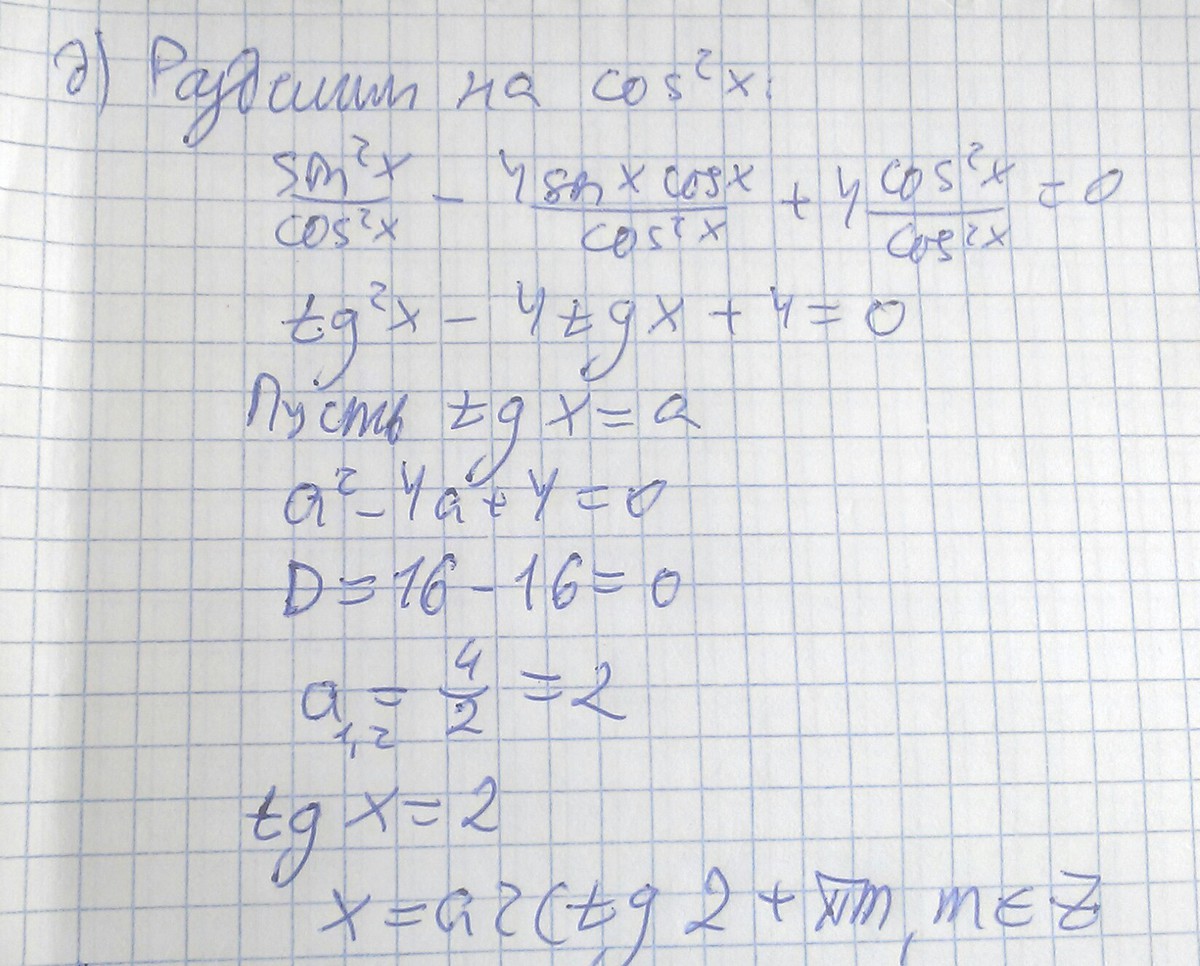 д) Разделим на cos²x:
sin²x/cos²x - 4 sin x cosx/cos²x + 4 cos²x/cos²x = 0
tg²x - 4tgx + 4 = 0
Пусть tg x = a
a² - 4a + 4 = 0
D = 16 - 16 = 0
a₁,₂ = 4/2 = 2
tg x = 2
x = arctg 2 + πm, m ∈ Z